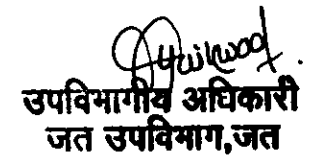 उपविभागीय अधिकारी
जत उपविभाग,जत